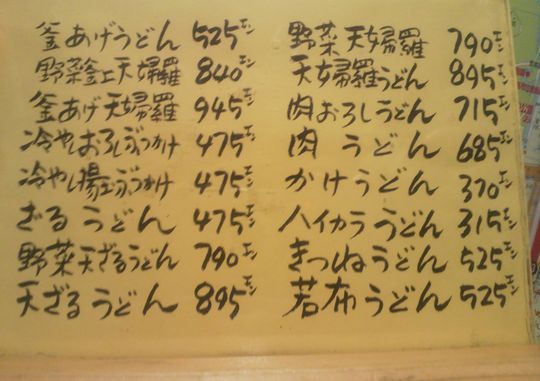 釜あげうどん 525エン
野菜釜上天婦羅 840エン
釜あげ天婦羅 945エン
冷やしおろしぶっかけ 475エン
冷やし揚玉ぶっかけ 475エン
ざるうどん 475エン
野菜天ざるうどん 790エン
天ざるうどん 895エン
野菜天婦羅 790エン
天婦羅うどん 895エン
肉おろしうどん 715エン
肉うどん 685エン
かけうどん 370エン
ハイカラうどん 315エン
きつねうどん 525エン
若布うどん 525エン